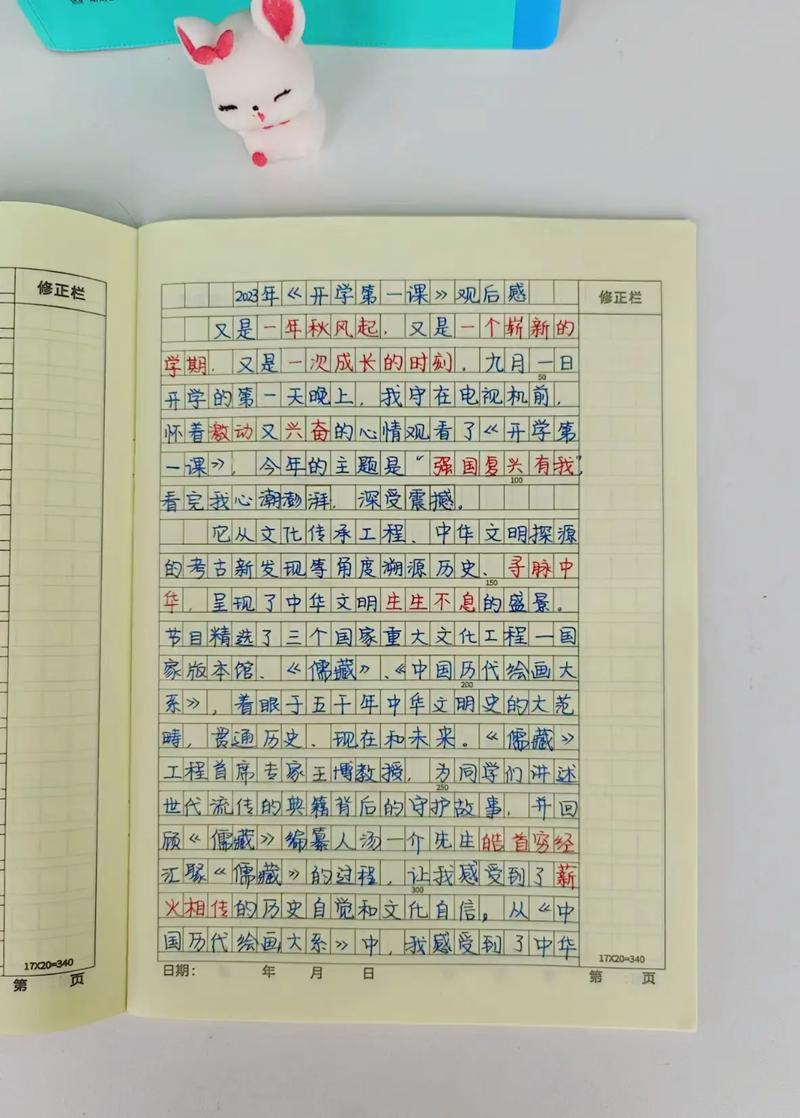 修正栏
17X20=340
第 页
2023年《开学第一课》观后感
又是一年秋风起，又是一个崭新的
学期，又是一次成长的时刻，九月一日
50
开学的第一天晚上，我守在电视机前，
怀着激动又兴奋的心情观看了《开学第
一课》，今年的主题是“强国复兴有我”
100
看完我心潮澎湃，深受震撼。
它从文化传承工程、中华文明探源
的考古新发现等角度溯源历史、寻脉中
150
华，呈现了中华文明生生不息的盛景。
节目精选了三个国家重大文化工程一国
家版本馆、《儒藏》、《中国历代绘画大
200
系》，着眼于五千年中华文明史的大范
畴，贯通历史、现在和未来。《儒藏》
工程首席专家王博教授，为同学们讲述
250
世代流传的典籍背后的守护故事，并回
顾《儒藏》编纂人汤一介先生皓首穷经
汇聚《儒藏》的过程，让我感受到了薪
300
火相传的历史自觉和文化自信，从《中
国历代绘画大系》中，我感受到了中华
修正栏
17X20=340
日期： 年 月 日
第 页